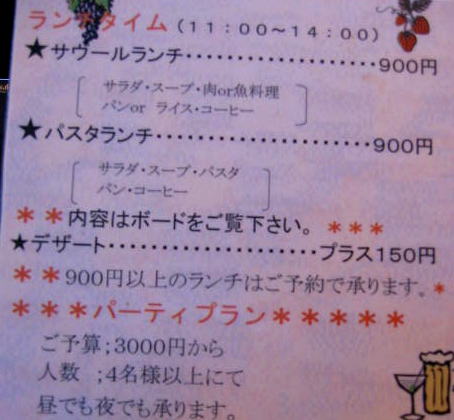 ランチタイム(11:00~14:00)
★サウールランチ・・・・・・・・・・・・・・・・・・・900円
サラダ・スープ・肉or魚料理
パンor ライス・コーヒー
★パスタランチ・・・・・・・・・・・・・・・・・・・・・900円
サラダ・スープ・パスタ
パン・コーヒー
**内容はボードをご覧下さい。 ***
★デザート・・・・・・・・・・・・・・・・・・・・プラス150円
**900円以上のランチはご予約で承ります。*
***パーティプラン*****
ご予算;3000円から
人数 ;4名様以上にて
昼でも夜でも承ります。